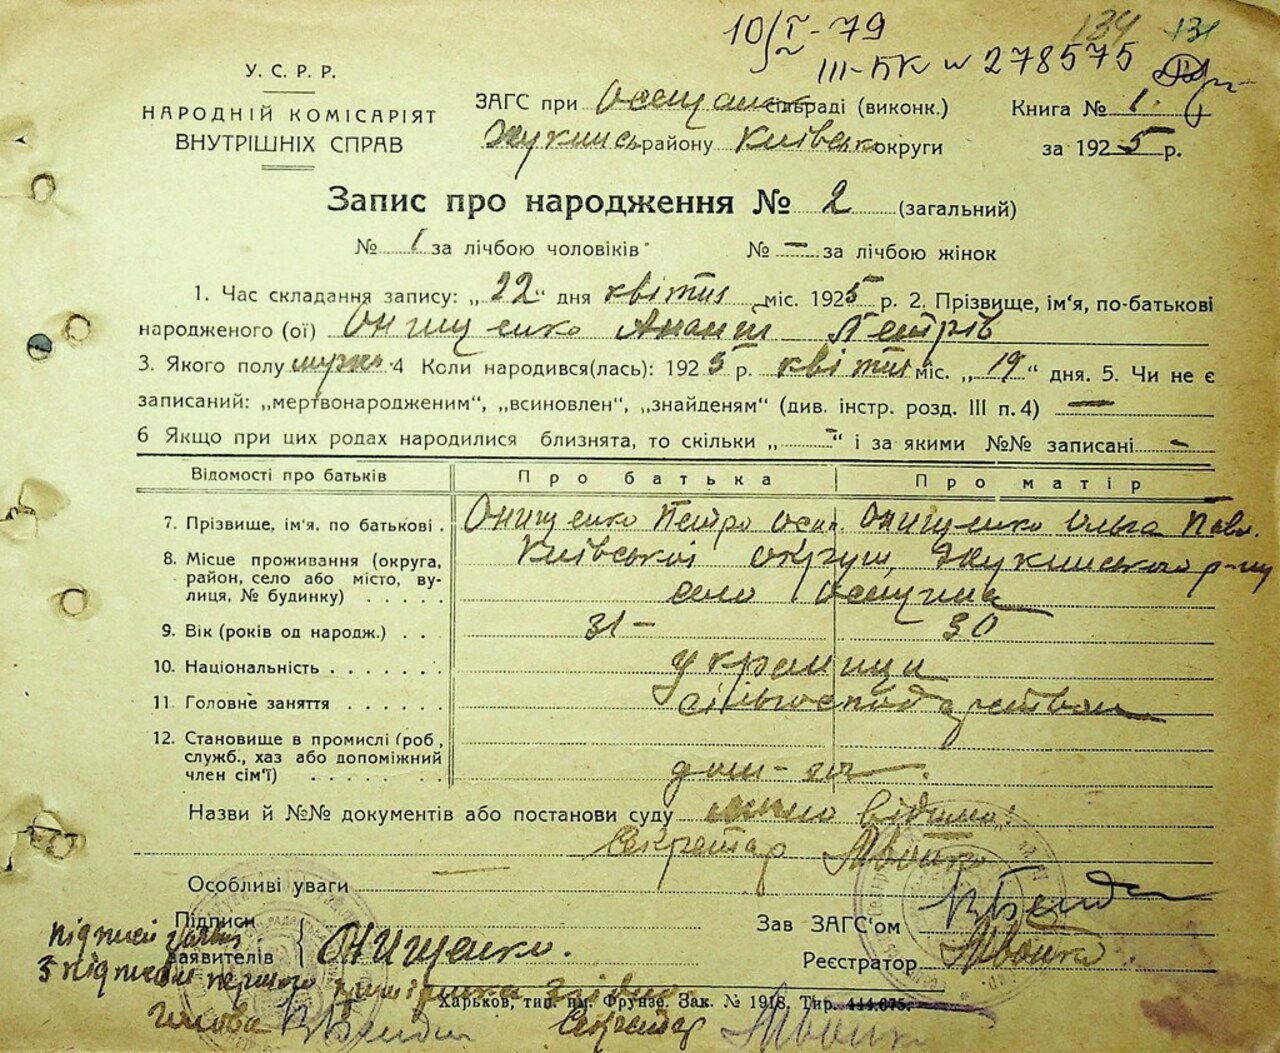 10/I-79
134 131
III-БК № 278575
У. С. Р. Р.
НАРОДНІЙ КОМІСАРІЯТ
ВНУТРІШНІХ СПРАВ
ЗАГС при сільраді (виконк.) Книга № 1
району Київськ округи за 1925 р.
Запис про народження № 2 (загальний)
№ 1 за лічбою чоловіків № — за лічбою жінок
1. Час складання запису: „22“ дня квітня міс. 1925 р. 2. Прізвище, ім'я, по-батькові
народженого (ої) Онищенко Ананій Петрів
3. Якого полу мужс. 4 Коли народився(лась): 1925 р. квітня міс. „19“ дня. 5. Чи не є
записаний: „мертвонародженим“, „всиновлен“, „знайденям“ (див. інстр. розд. III п. 4) —
6 Якщо при цих родах народилися близнята, то скільки „—“ і за якими №№ записані —
Відомості про батьків Про батька Про матір
7. Прізвище, ім'я, по батькові . Онищенко Петро Осип. Онищенко Ольга Павл.
8. Місце проживання (округа, Київської округи, Жукинського р-ну
район, село або місто, ву-
лиця, № будинку) . . . . . село Осещина
9. Вік (років од народж.) . . . 31 — 30
10. Національність . . . . . . . українці
11. Головне заняття . . . . . . сільгосподарством
12. Становище в промислі (роб,
служб., хаз або допоміжний
член сім'ї) . . . . . . . .
Назви й №№ документів або постанови суду відомо:
Секретар
Особливі уваги —
Підписи
заявителів { Онищенко.
Зав ЗАГС'ом
Реєстратор
підписи
з підписом першого
Харьков, тип. им. Фрунзе. Зак. № 1918. Тир. 444.675.
Голова Секретар